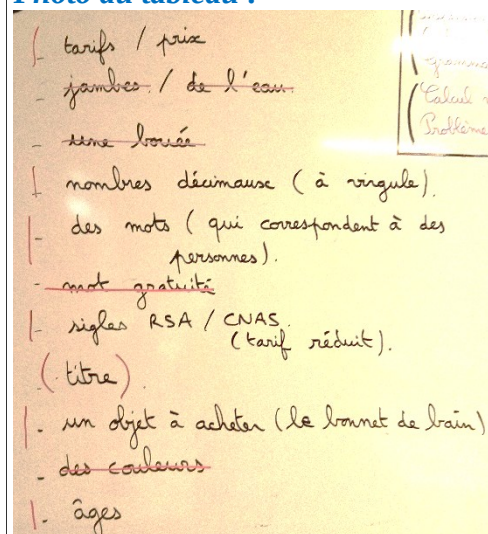 Photo du tableau :
- tarifs / prix
- jambes / de l'eau
- une bouée
- nombres décimause (à virgule).
- des mots (qui correspondent à des
personnes).
- mot gratuité
- sigles RSA / CNAS
(tarif réduit).
(titre).
- un objet à acheter (le bonnet de bain)
- des couleurs
- âges
Calcul
Problème